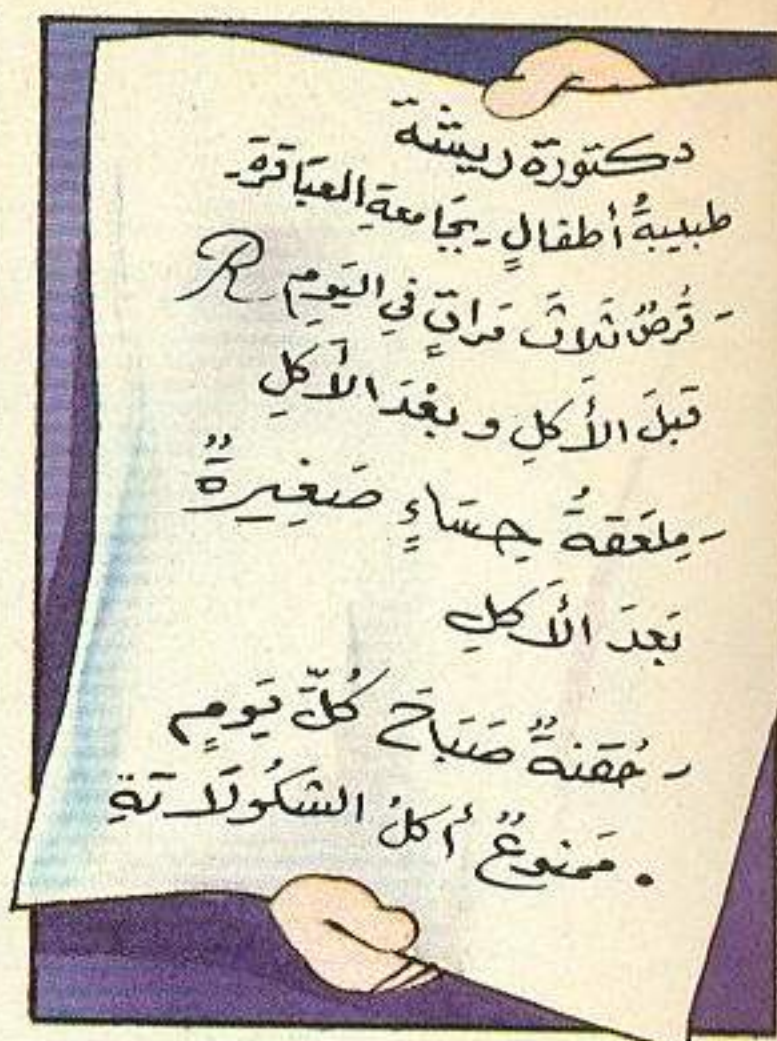 دكتورة ريشة
طبيبةُ أطفالٍ بجَامعةِ العبَاقرة -
- قُرصٌ ثَلاثَ مَراتٍ في اليَومِ R
قبلَ الأَكلِ وبعْدَ الأَكلِ
- مِلعَقةُ حِسَاءٍ صَغِيرةٌ
بَعدَ الأَكلِ
- حُقنةٌ صَبَاحَ كُلِّ يَومٍ
. مَمنوعٌ أكلُ الشكُولَاتةِ